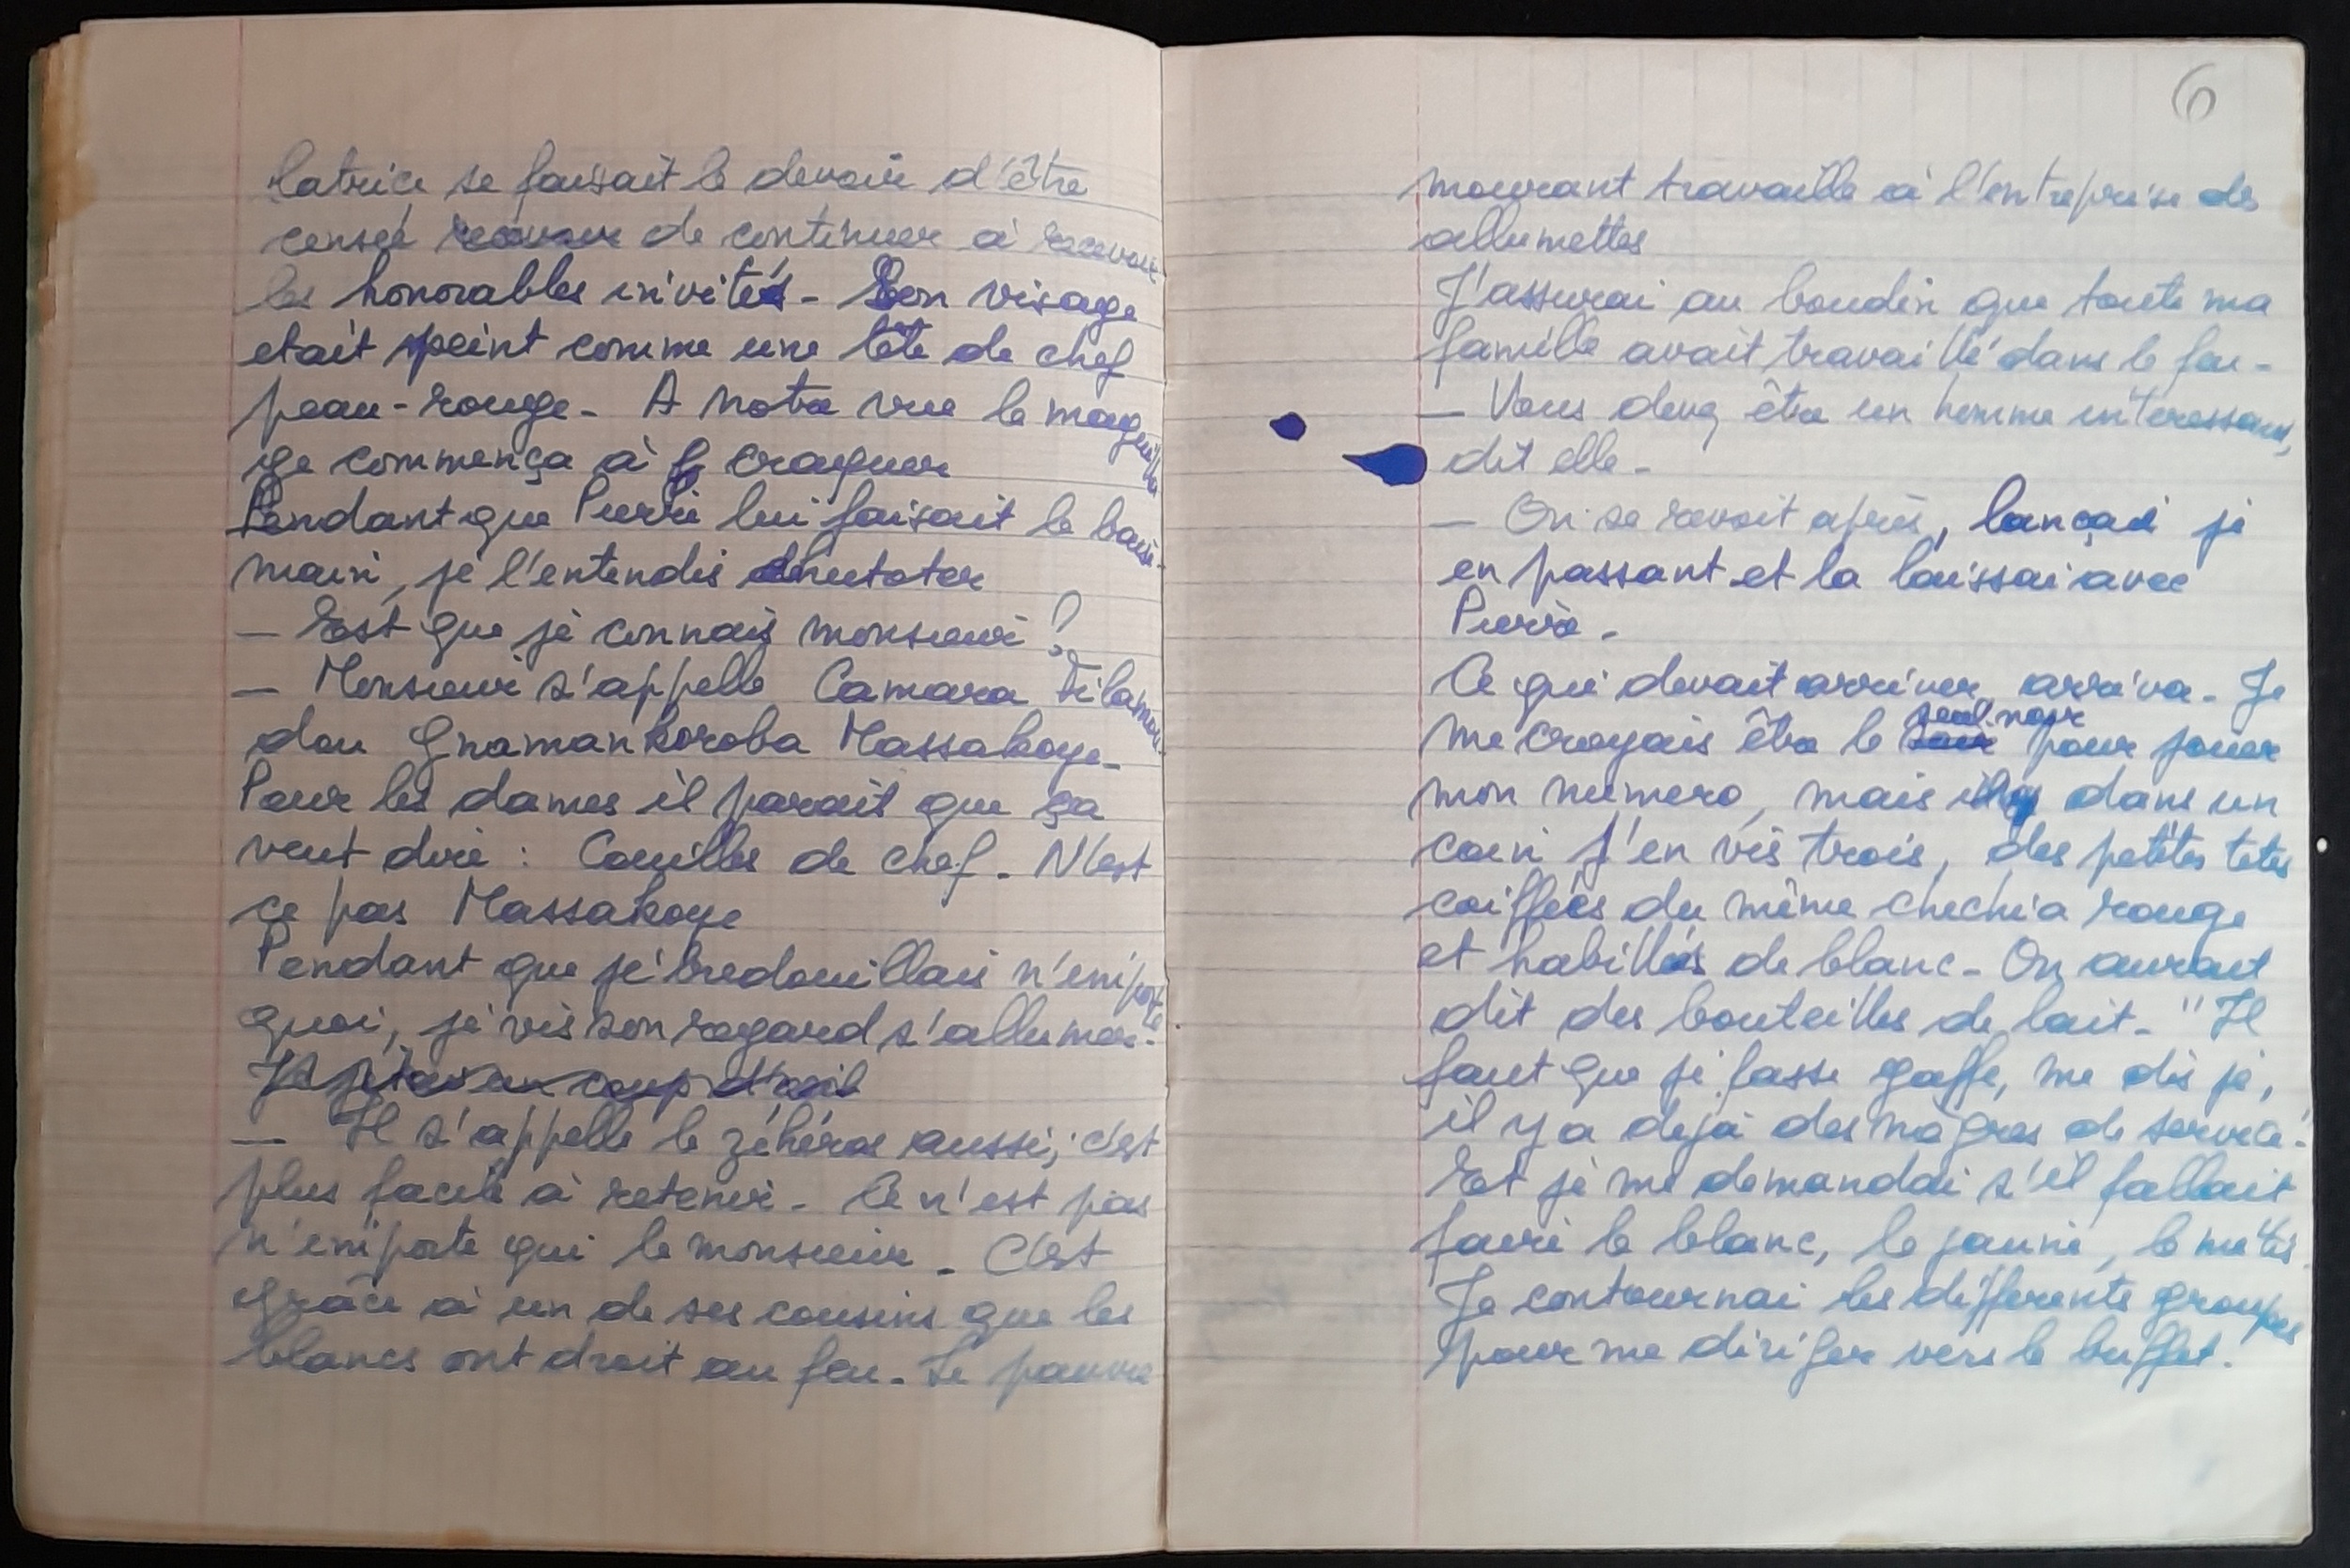 latrice se faisait le devoir d'être
censée de continuer à recevoir
les honorables invités - Son visage
etait peint comme une tête de chef
peau-rouge - A notre vue le maquilla
ge commença à craquer
Pendant que Pierre lui faisait le baise-
main, je l'entendis chuchoter
— Est que je connais monsieur ?
— Monsieur s'appelle Camara Filamou-
dou Gnamankoroba Massakoye -
Pour les dames il parait que ça
veut dire : Couilles de chef - N'est
ce pas Massakoye
Pendant que je bredouillais n'importe
quoi, je vis son regard s'allumer -
Je jetai un coup d'œil
— Il s'appelle le zéhéros aussi, c'est
plus facile à retenir - Ce n'est pas
n'importe qui le monsieur - C'est
grâce à un de ses cousins que les
blancs ont droit au feu - Le pauvre
6
mourant travaille à l'entreprise des
allumettes
J'assurai au boudin que toute ma
famille avait travaillé dans le feu -
— Vous devez être un homme interessant,
dit elle -
— On se revoit après, lançai je
en passant et la laissai avec
Pierre -
Ce qui devait arriver, arriva - Je
me croyais être le seul noir pour jouer
mon numero, mais dans un
coin j'en vis trois, des petites tetes
coiffées du même chechia rouge
et habillés de blanc - On aurait
dit des bouteilles de lait - "Il
faut que je fasse gaffe, me dis je,
il y a dejà des nègres de service -
Et je me demandai s'il fallait
faire le blanc, le jaune, le métis
Je contournai les différents groupes
pour me diriger vers le buffet.